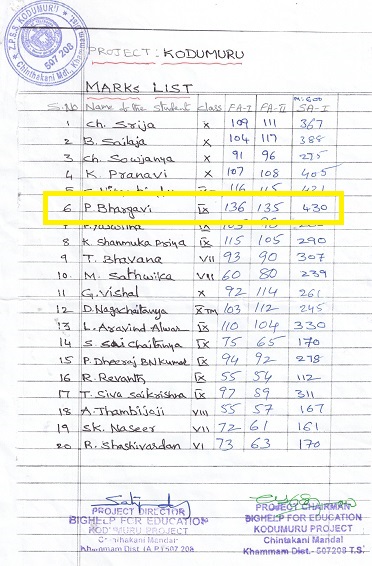 Z.P.S.S KODUMURU
Chinthakani Mdl., Khammam
507 208
PROJECT : KODUMURU
MARKS LIST
M:600
S.No Name of the student Class FA-I FA-II SA-I
1 Ch. Srija X 109 111 367
2 B. Sailaja X 104 117 388
3 Ch. Soujanya X 91 96 275
4 K. Pranavi X 107 108 405
5 116 115 421
6 P. Bhargavi IX 136 135 430
7 103
8 K. Shanmuka Priya IX 115 105 290
9 T. Bhavana VII 93 90 307
10 M. Sathwika VII 60 80 239
11 G. Vishal X 92 114 261
12 D. Nagachaitanya X TM 103 112 245
13 L. Aravind Alwar IX 110 104 330
14 S Sai Chaitanya IX 75 65 170
15 P. Dheeraj BN Kumar IX 94 92 278
16 R. Revanth IX 55 54 112
17 T. Siva Saikrishna IX 97 59 311
18 A. Thambijoji VIII 55 57 167
19 SK. Naseer VII 72 61 161
20 R. Shashivardan VI 73 63 170
PROJECT DIRECTOR
BIGHELP FOR EDUCATION
KODUMURU PROJECT
Chintakani Mandal
Khammam Dist (A.P) 507 208
PROJECT CHAIRMAN
BIGHELP FOR EDUCATION
KODUMURU PROJECT
Chintakani Mandal
Khammam Dist.- 507208 T.S.